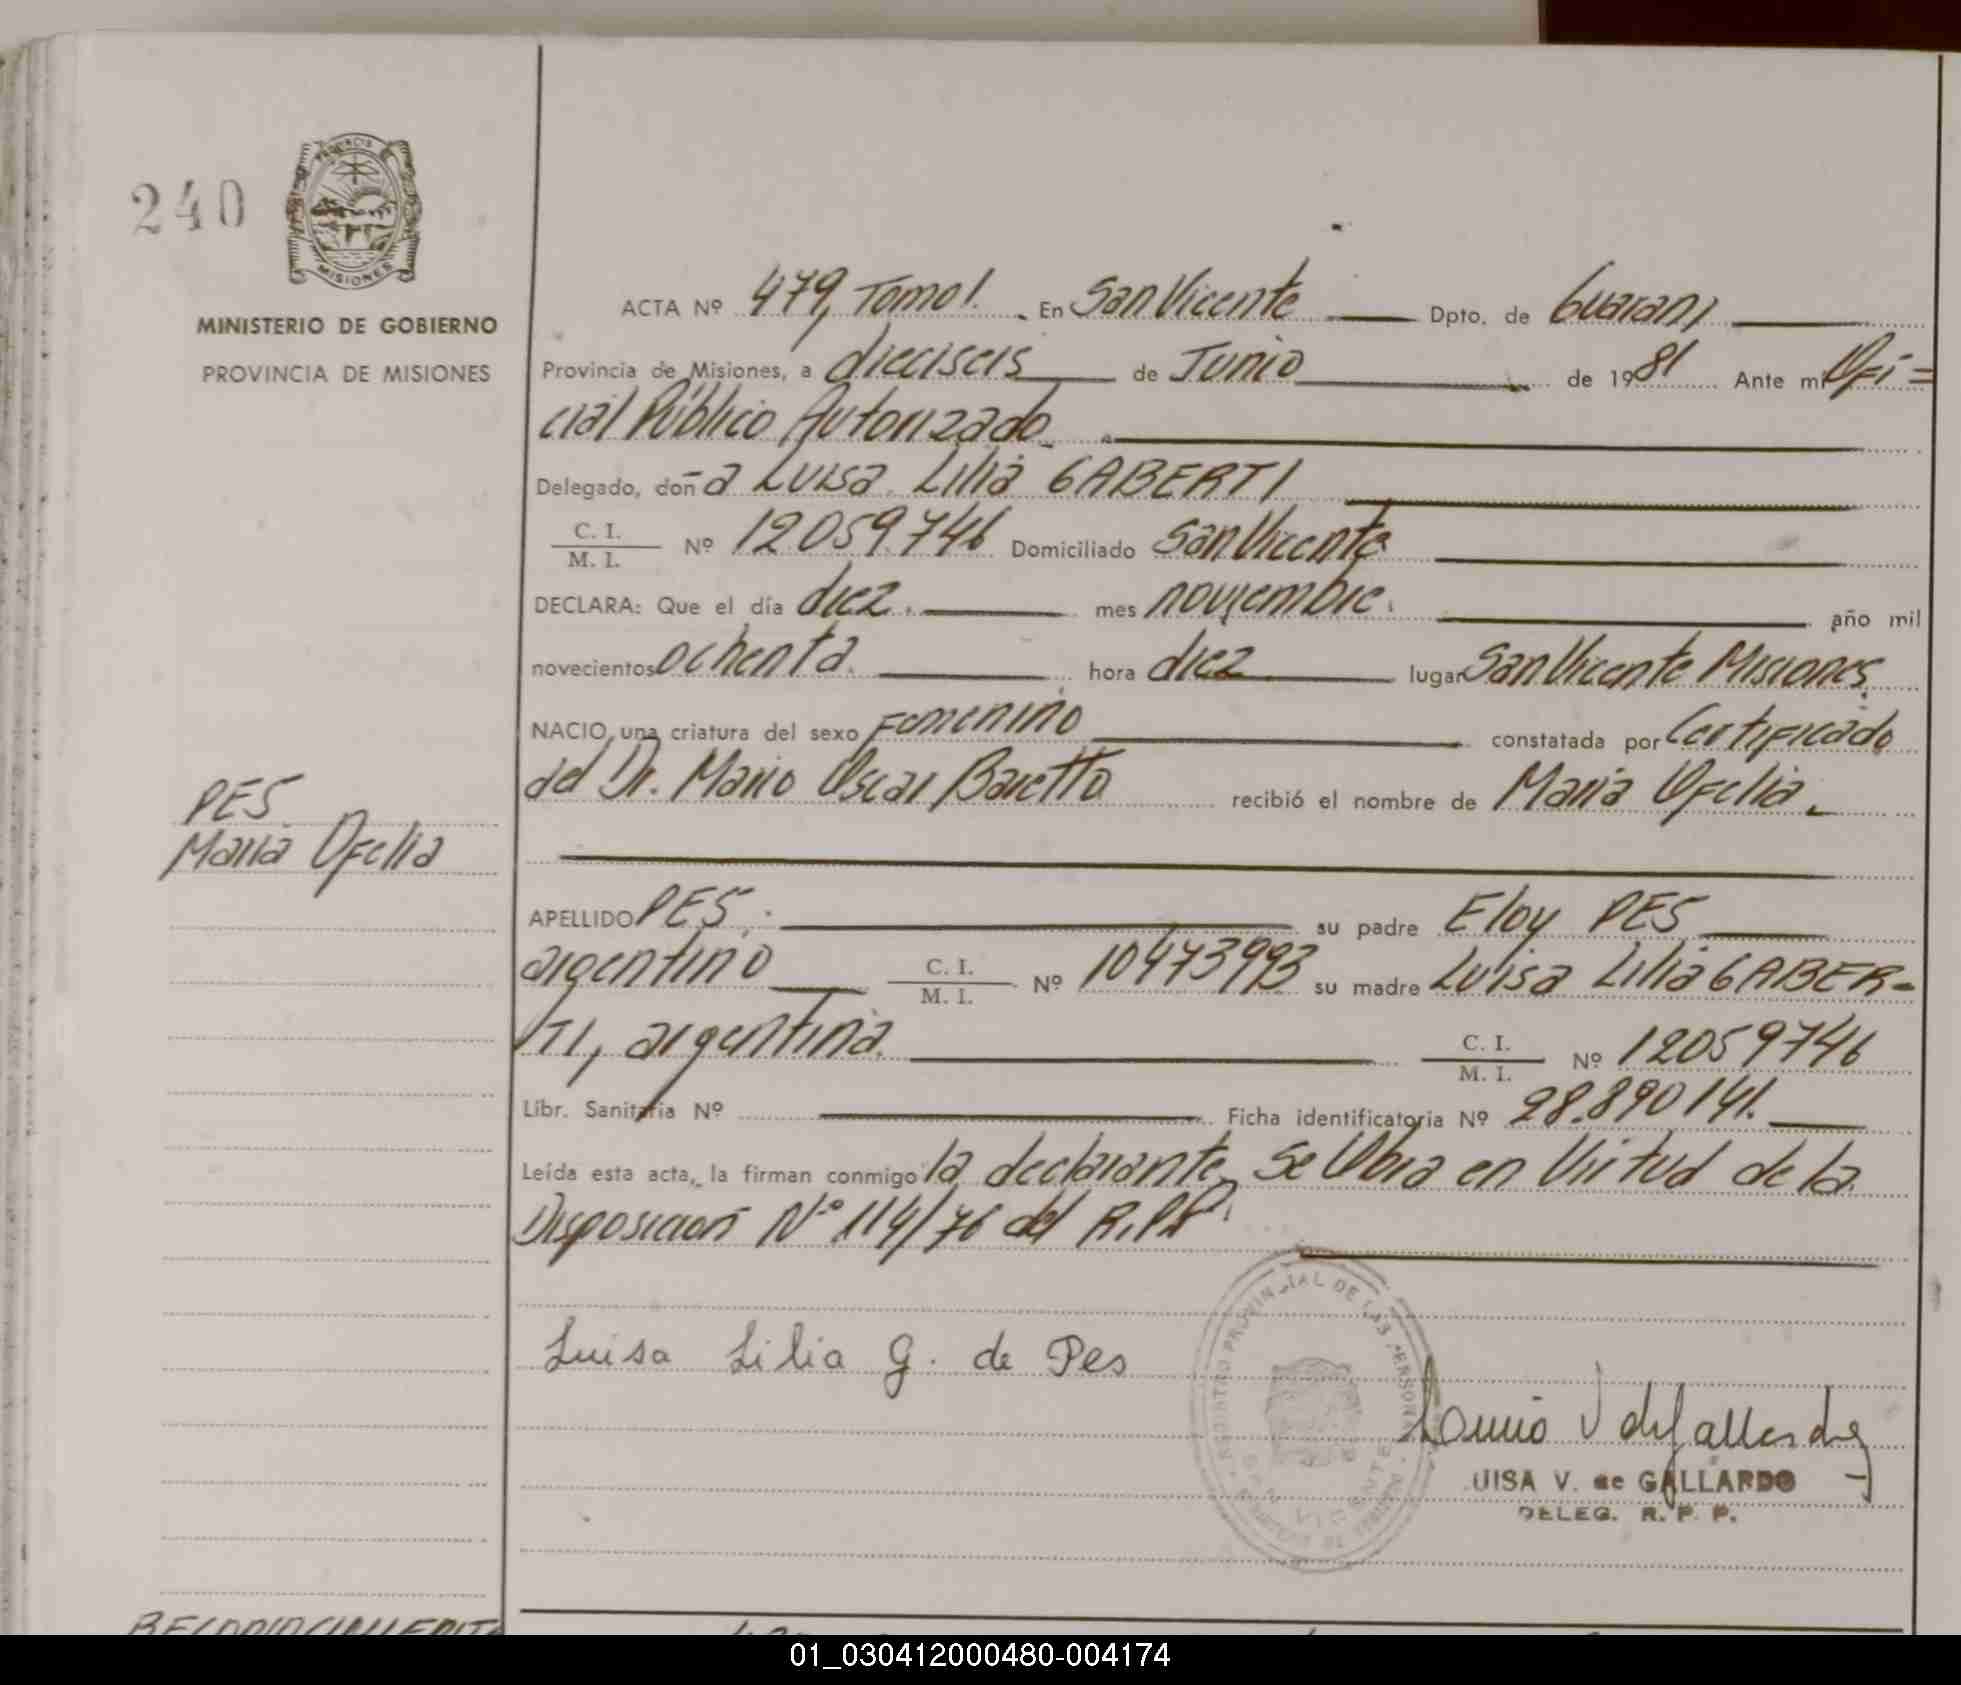 240
PROVINCIA
MISIONES
MINISTERIO DE GOBIERNO
PROVINCIA DE MISIONES
ACTA Nº 479, Tomo I. En San Vicente Dpto. de Guaraní
Provincia de Misiones, a dieciseis de Junio de 1981 Ante mí Ofi=
cial Público Autorizado
Delegado, doña Luisa Lilia GABERTI
C. I.
M. I. Nº 12.059.746 Domiciliado San Vicente
DECLARA: Que el día diez mes noviembre. año mil
novecientos ochenta. hora diez lugar San Vicente Misiones.
NACIO, una criatura del sexo Femenino constatada por Certificado
del Dr. Mario Oscar Baretto recibió el nombre de Maria Ofelia.
PES
Maria Ofelia
APELLIDO PES. su padre Eloy PES
argentino C. I.
M. I. Nº 10473993 su madre Luisa Lilia GABER-
TI, argentina. C. I.
M. I. Nº 12059746
Libr. Sanitaria Nº Ficha identificatoria Nº 28.890141.
Leída esta acta, la firman conmigo la declarante, Se Obra en Virtud de la
Disposicion Nº 114/76 del R.P.P.
Luisa Lilia G. de Pes
REGISTRO PROVINCIAL DE LAS PERSONAS
SAN VICENTE
UISA V. de GALLARDO
DELEG. R. P. P.
01_030412000480-004174